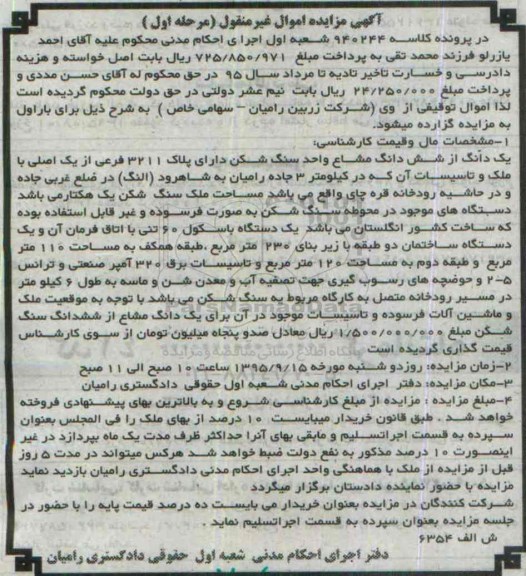 آگهی مزایده اموال غیرمنقول (مرحله اول)
در پرونده کلاسه ۹۴۰۲۴۴ شعبه اول اجرای احکام مدنی محکوم علیه آقای احمد
یازرلو فرزند محمد تقی به پرداخت مبلغ ۷۲۵/۸۵۰/۹۷۱ ریال بابت اصل خواسته و هزینه
دادرسی و خسارت تاخیر تادیه تا مرداد سال ۹۵ در حق محکوم له آقای حسن مددی و
پرداخت مبلغ ۲۴/۲۵۰/۰۰۰ ریال بابت نیم عشر دولتی در حق دولت محکوم گردیده است
لذا اموال توقیفی از وی (شرکت زربین رامیان – سهامی خاص) به شرح ذیل برای باراول
به مزایده گزارده میشود.
۱-مشخصات مال وقیمت کارشناسی:
یک دانگ از شش دانگ مشاع واحد سنگ شکن دارای پلاک ۳۲۱۱ فرعی از یک اصلی با
ملک و تاسیسات آن که در کیلومتر ۳ جاده رامیان به شاهرود (النگ) در ضلع غربی جاده
و در حاشیه رودخانه قره چای واقع می باشد مساحت ملک سنگ شکن یک هکتارمی باشد
دستگاه های موجود در محوطه سنگ شکن به صورت فرسوده و غیر قابل استفاده بوده
که ساخت کشور انگلستان می باشد یک دستگاه باسکول ۶۰ تنی با اتاق فرمان آن و یک
دستگاه ساختمان دو طبقه با زیر بنای ۲۳۰ متر مربع ،طبقه همکف به مساحت ۱۱۰ متر
مربع و طبقه دوم به مساحت ۱۲۰ متر مربع و تاسیسات برق ۳۲۰ آمپر صنعتی و ترانس
۲-۵ و حوضچه های رسوب گیری جهت تصفیه آب و معدن شن و ماسه به طول ۶ کیلو متر
در مسیر رودخانه متصل به کارگاه مربوط به سنگ شکن می باشد با توجه به موقعیت ملک
و ماشین آلات فرسوده و تاسیسات موجود در آن برای یک دانگ مشاع از ششدانگ سنگ
شکن مبلغ ۱/۵۰۰/۰۰۰/۰۰۰ ریال معادل صدو پنجاه میلیون تومان از سوی کارشناس
قیمت گذاری گردیده است
۲-زمان مزایده: روزدو شنبه مورخه ۱۳۹۵/۹/۱۵ ساعت ۱۰ صبح الی ۱۱ صبح
۳-مکان مزایده: دفتر اجرای احکام مدنی شعبه اول حقوقی دادگستری رامیان
۴-مبلغ مزایده : مزایده از مبلغ کارشناسی شروع و به بالاترین بهای پیشنهادی فروخته
خواهد شد . طبق قانون خریدار میبایست ۱۰ درصد از بهای ملک را فی المجلس بعنوان
سپرده به قسمت اجراتسلیم و مابقی بهای آنرا حداکثر ظرف مدت یک ماه بپردازد در غیر
اینصورت ۱۰ درصد مذکور به نفع دولت ضبط خواهد شد هرکس میتواند در مدت ۵ روز
قبل از مزایده از ملک با هماهنگی واحد اجرای احکام مدنی دادگستری رامیان بازدید نماید
مزایده با حضور نماینده دادستان برگزار میگردد
شرکت کنندگان در مزایده بعنوان خریدار می بایست ده درصد قیمت پایه را با حضور در
جلسه مزایده بعنوان سپرده به قسمت اجراتسلیم نماید .
ش الف ۶۳۵۴
دفتر اجرای احکام مدنی شعبه اول حقوقی دادگستری رامیان